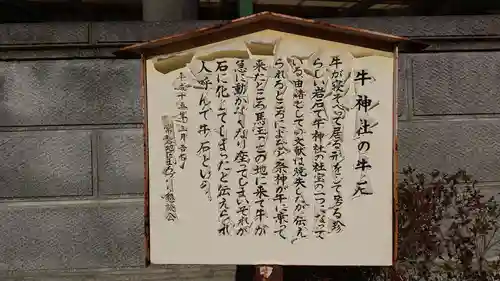 牛神社の牛石
牛が寝そべって居る形をして居る珍
らしい岩石で牛神社の社宝の一つなって
いる由緒としての文献は焼失したが伝え
られるところによれば桑神が牛に乗って
来たところ馬王のこの地に来て牛が
急に動かなくなり座ってしまいそれが
石に化してしまったと伝えられ
人呼んで牛石という
平成十五年